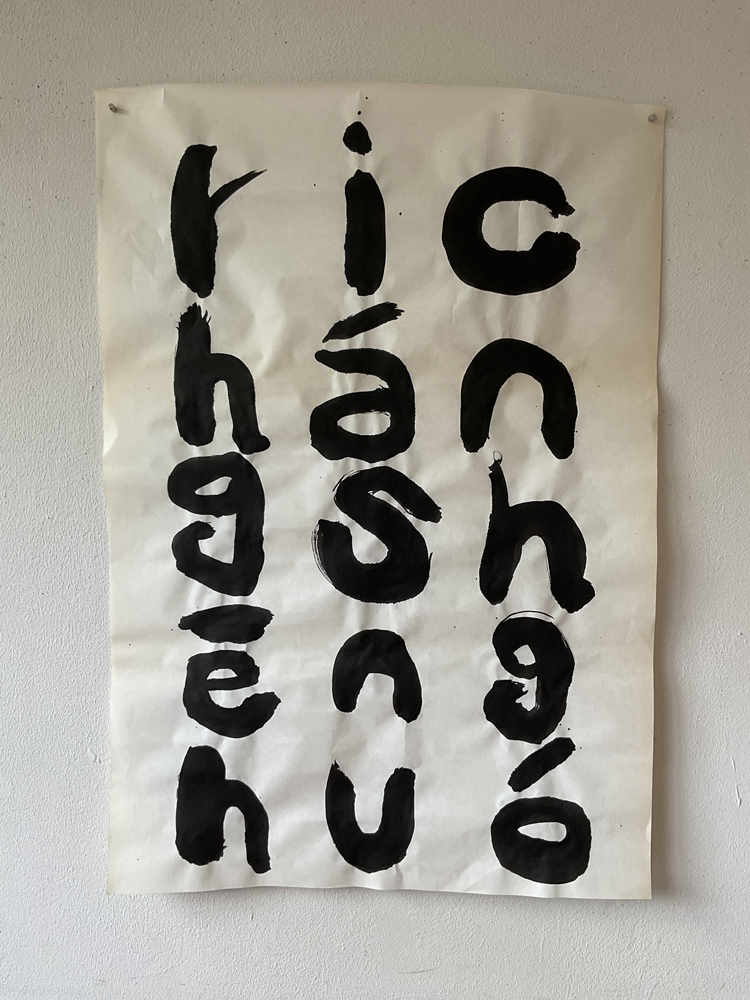 ric
hán
gsh
ēng
huó